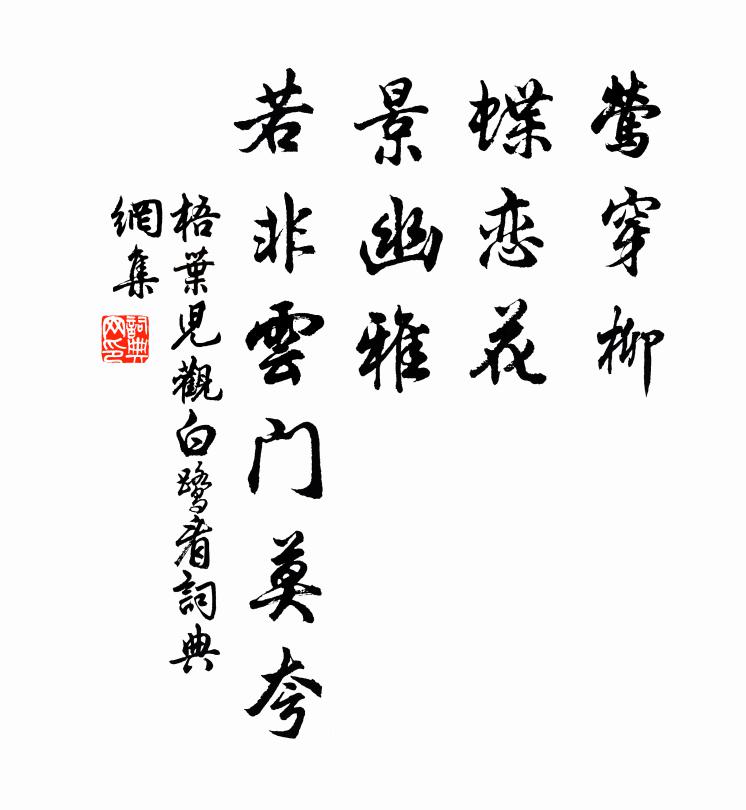 莺穿柳
蝶恋花
景幽雅
若非雲门莫夸
梧葉児觀白鹭者詞典
網集
詞典
网印